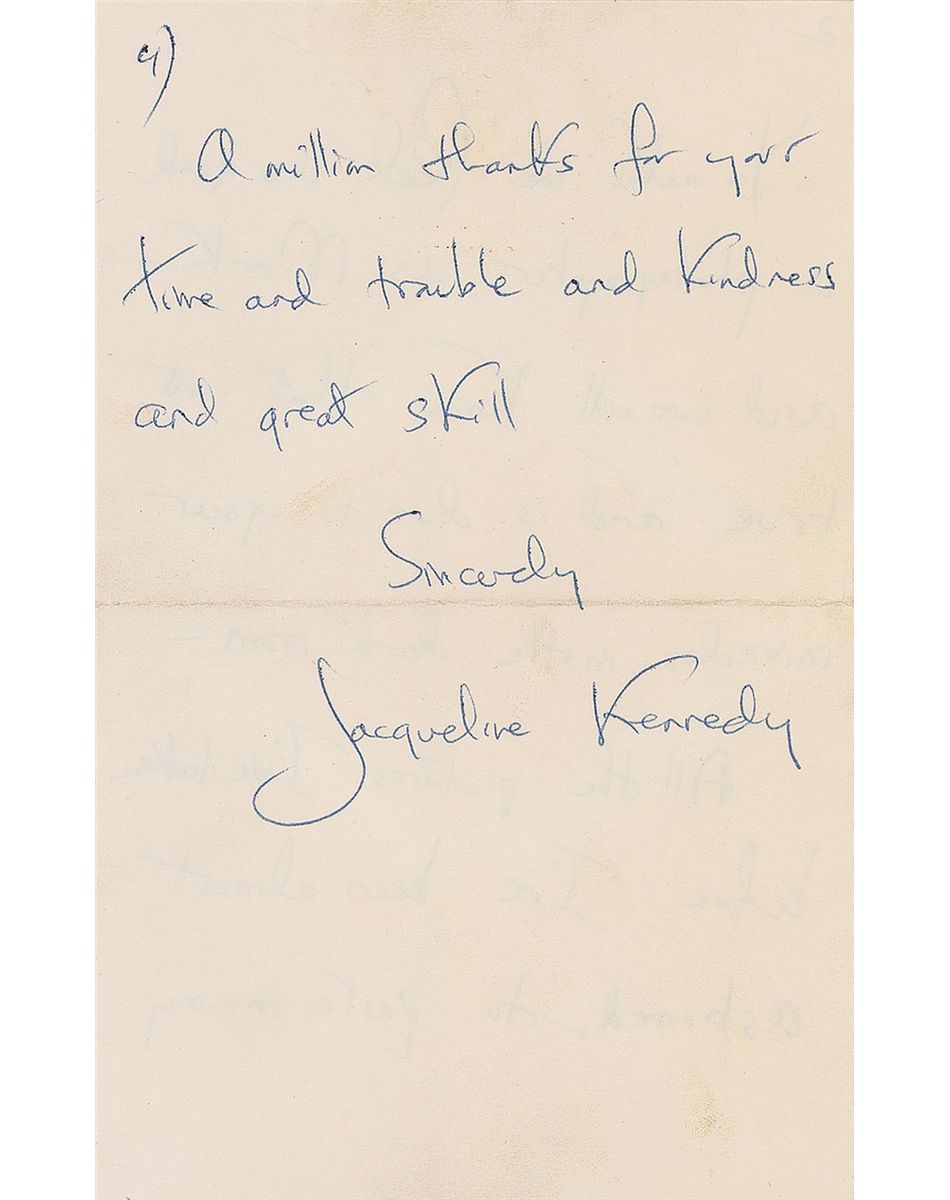 4)
A million thanks for your
time and trouble and kindness
and great skill
Sincerely
Jacqueline Kennedy